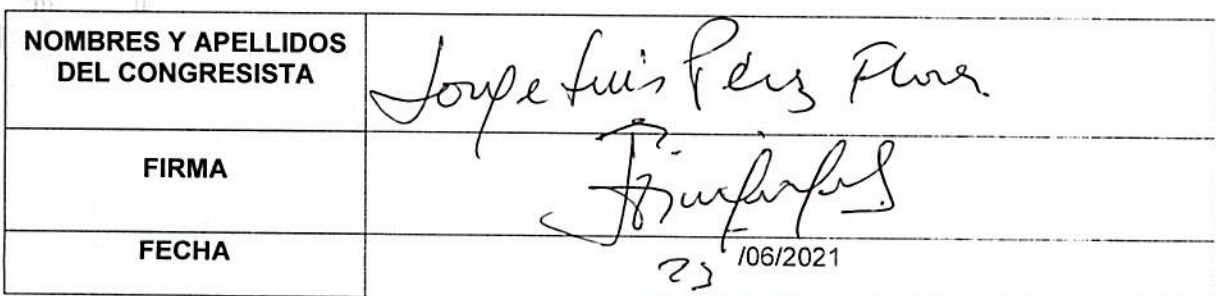 NOMBRES Y APELLIDOS
DEL CONGRESISTA
Jorge Luis Pérez Flores
FIRMA
FECHA
23 /06/2021